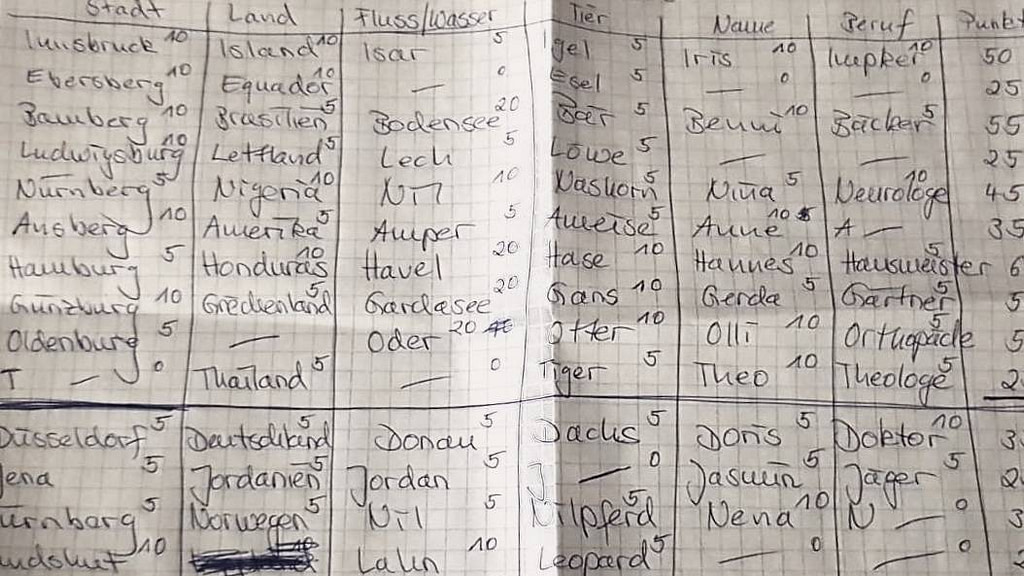 Stadt Land Fluss/Wasser Tier Name Beruf Punkt
Innsbruck 10 Island 10 Isar 5 Igel 5 Iris 10 Impker 10 50
Ebersberg 10 Equador 10 — 0 Esel 5 — 0 — 0 25
Bamberg 10 Brasilien 5 Bodensee 20 Bär 5 Benni 10 Bäcker 5 55
Ludwigsburg 10 Lettland 5 Lech 5 Löwe 5 — — 25
Nürnberg 5 Nigeria 10 Nil 10 Nashorn 5 Nina 5 Neurologe 10 45
Ansberg 10 Amerika 5 Amper 5 Ameise 5 Anne 10 A — 35
Hamburg 5 Honduras 10 Havel 20 Hase 10 Hannes 10 Hausmeister 5 6
Günzburg 10 Griechenland 5 Gardasee 20 Gans 10 Gerda 5 Gärtner 5 5
Oldenburg 5 — Oder 20 Otter 10 Olli 10 Orthopäde 5 5
T — 0 Thailand 5 — 0 Tiger 5 Theo 10 Theologe 5 2
Düsseldorf 5 Deutschland 5 Donau 5 Dachs 5 Doris 5 Doktor 10 3
Jena 5 Jordanien 5 Jordan 5 J — 0 Jasmin 5 Jäger 5 2
ürnbarg 5 Norwegen 5 Nil 5 Nilpferd 5 Nena 10 N — 0 3
ndshut 10 Lahn 10 Leopard 5 — 0 — 0